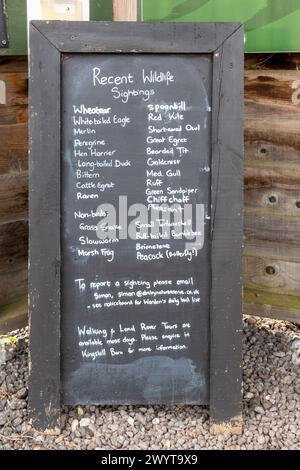 Recent Wildlife
Sightings
Wheatear Spoonbill
White-tailed Eagle Red Kite
Merlin Short-eared Owl
Peregrine Great Egret
Hen Harrier Bearded Tit
Long-tailed Duck Goldcrest
Bittern Med. Gull
Cattle Egret Ruff
Raven Green Sandpiper
Chiffchaff
Pheasant
Non-birds:
Grass Snake Small Tortoiseshell
Slowworm Buff-tailed Bumblebee
Marsh Frog Brimstone
Peacock (Butterfly!)
To report a sighting please email
Simon,
- see noticeboard for Warden's daily bird list
Walking & Land Rover Tours are
available most days. Please enquire in
Kingshill Barn for more information.